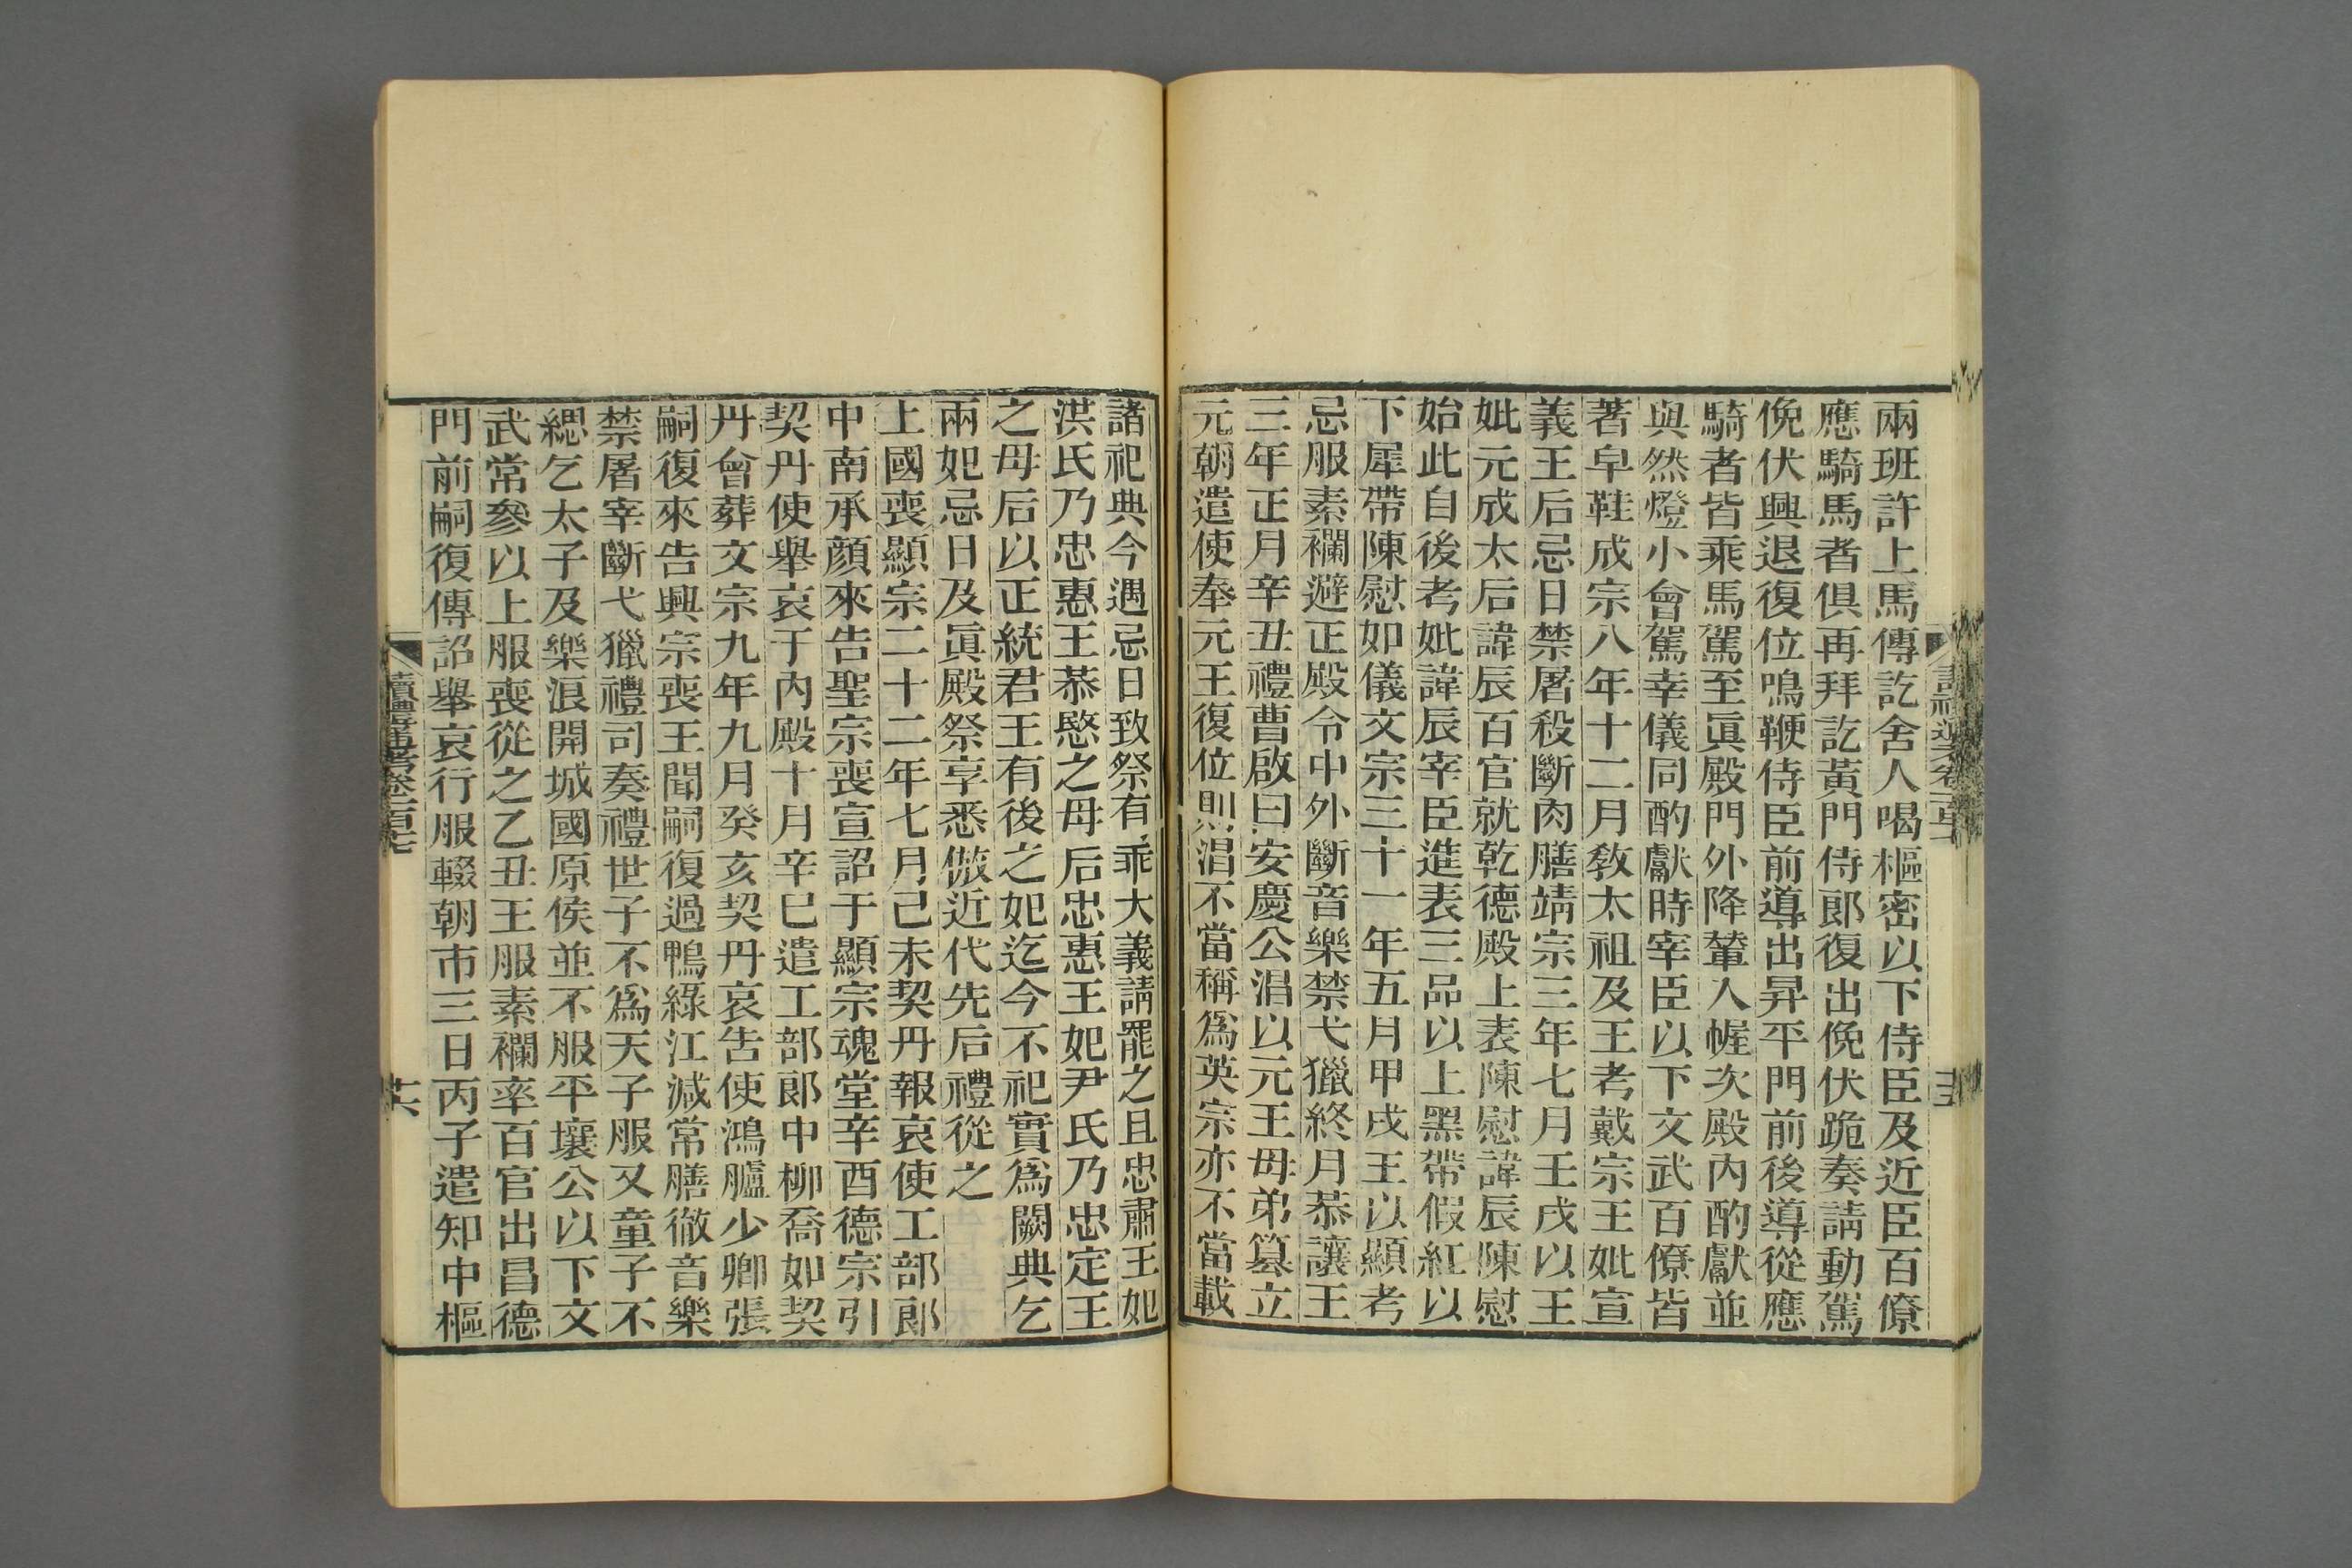 兩班許上馬傳訖舍人喝樞密以下侍臣及近臣百僚
應騎馬者俱再拜訖黃門侍郎復出俛伏跪奏請動駕
俛伏興退復位鳴鞭侍臣前導出昇平門前後導從應
騎者皆乘馬駕至眞殿門外降輦入幄次殿內酌獻並
與然燈小會駕幸儀同酌獻時宰臣以下文武百僚皆
著皁鞋成宗八年十二月敎太祖及王考戴宗王妣宣
義王后忌日禁屠殺斷肉膳靖宗三年七月壬戌以王
妣元成太后諱辰百官就乾德殿上表陳慰諱辰陳慰
始此自後考妣諱辰宰臣進表三品以上黑帶假紅以
下犀帶陳慰如儀文宗三十一年五月甲戌王以顯考
忌服素襴避正殿令中外斷音樂禁弋獵終月恭讓王
三年正月辛丑禮曹啟曰安慶公淐以元王母弟簒立
元朝遣使奉元王復位則淐不當稱爲英宗亦不當載
諸祀典今遇忌日致祭有乖大義請罷之且忠肅王妃
洪氏乃忠惠王恭愍之母后忠惠王妃尹氏乃忠定王
之母后以正統君王有後之妃迄今不祀實爲闕典乞
兩妃忌日及眞殿祭享悉倣近代先后禮從之
上國喪顯宗二十二年七月己未契丹報哀使工部郎
中南承顏來告聖宗喪宣詔于顯宗魂堂辛酉德宗引
契丹使舉哀于內殿十月辛巳遣工部郎中柳喬如契
丹會葬文宗九年九月癸亥契丹哀告使鴻臚少卿張
嗣復來告興宗喪王聞嗣復過鴨綠江減常膳徹音樂
禁屠宰斷弋獵禮司奏禮世子不爲天子服又童子不
緦乞太子及樂浪開城國原侯並不服平壤公以下文
武常參以上服喪從之乙丑王服素襴率百官出昌德
門前嗣復傳詔舉哀行服輟朝市三日丙子遣知中樞